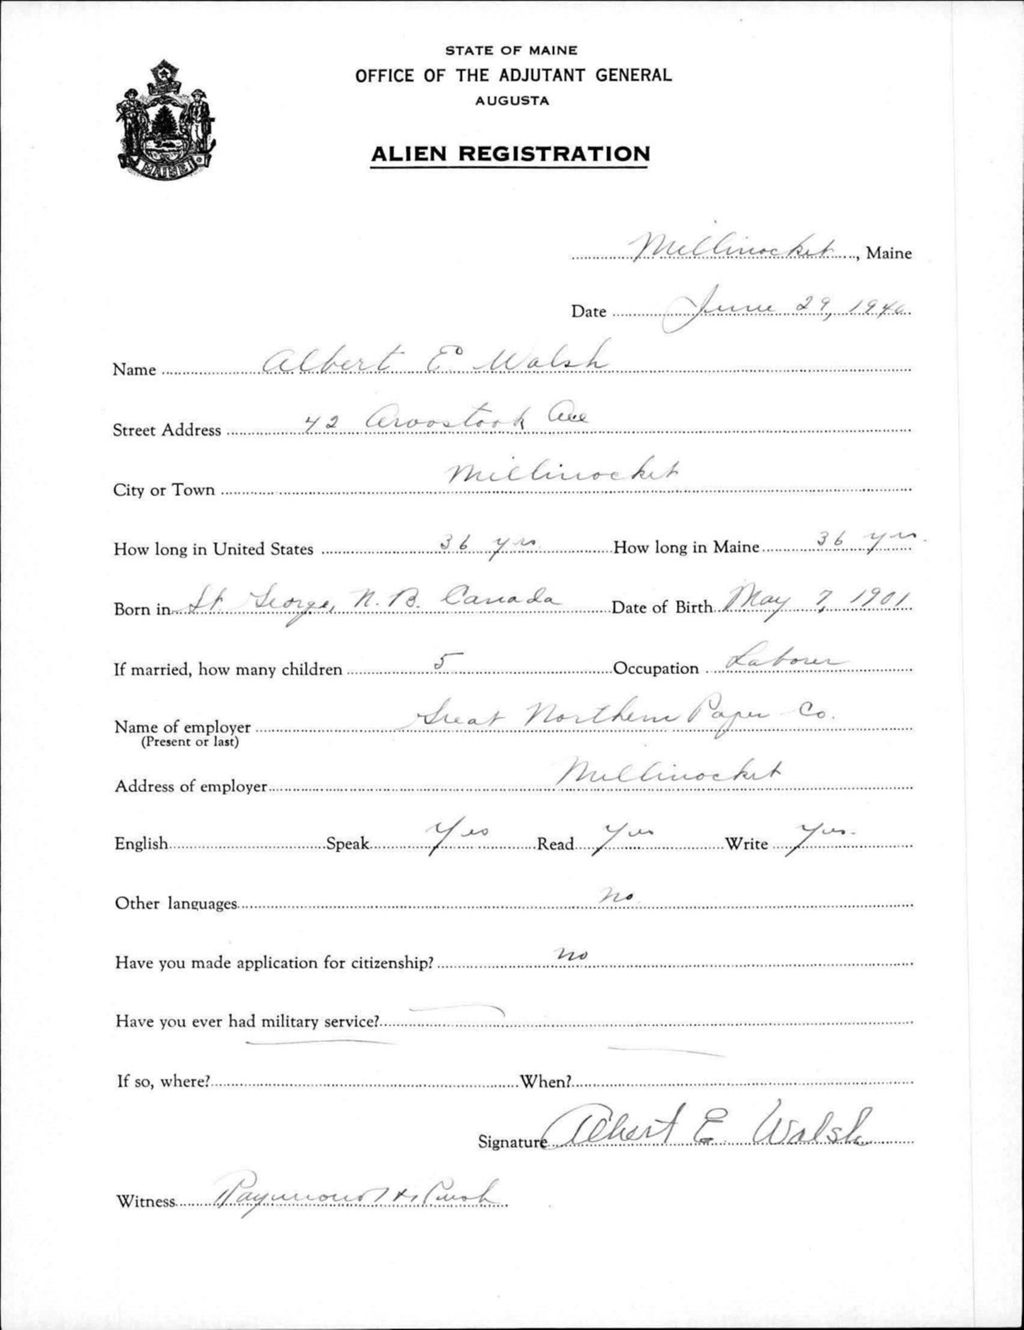 STATE OF MAINE
OFFICE OF THE ADJUTANT GENERAL
AUGUSTA
ALIEN REGISTRATION
MAINE
Millinocket, Maine
Date June 29, 1940
Name Albert E. Walsh
Street Address 42 Aroostook Ave
City or Town Millinocket
How long in United States 36 yrs. How long in Maine 36 yrs.
Born in St George, N. B. Canada Date of Birth May 7, 1901
If married, how many children 5 Occupation Laborer
Name of employer Great Northern Paper Co.
(Present or last)
Address of employer Millinocket
English Speak Yes Read Yes Write Yes.
Other languages No
Have you made application for citizenship? no
Have you ever had military service?
If so, where? When?
Signature Albert E Walsh
Witness Raymond H.